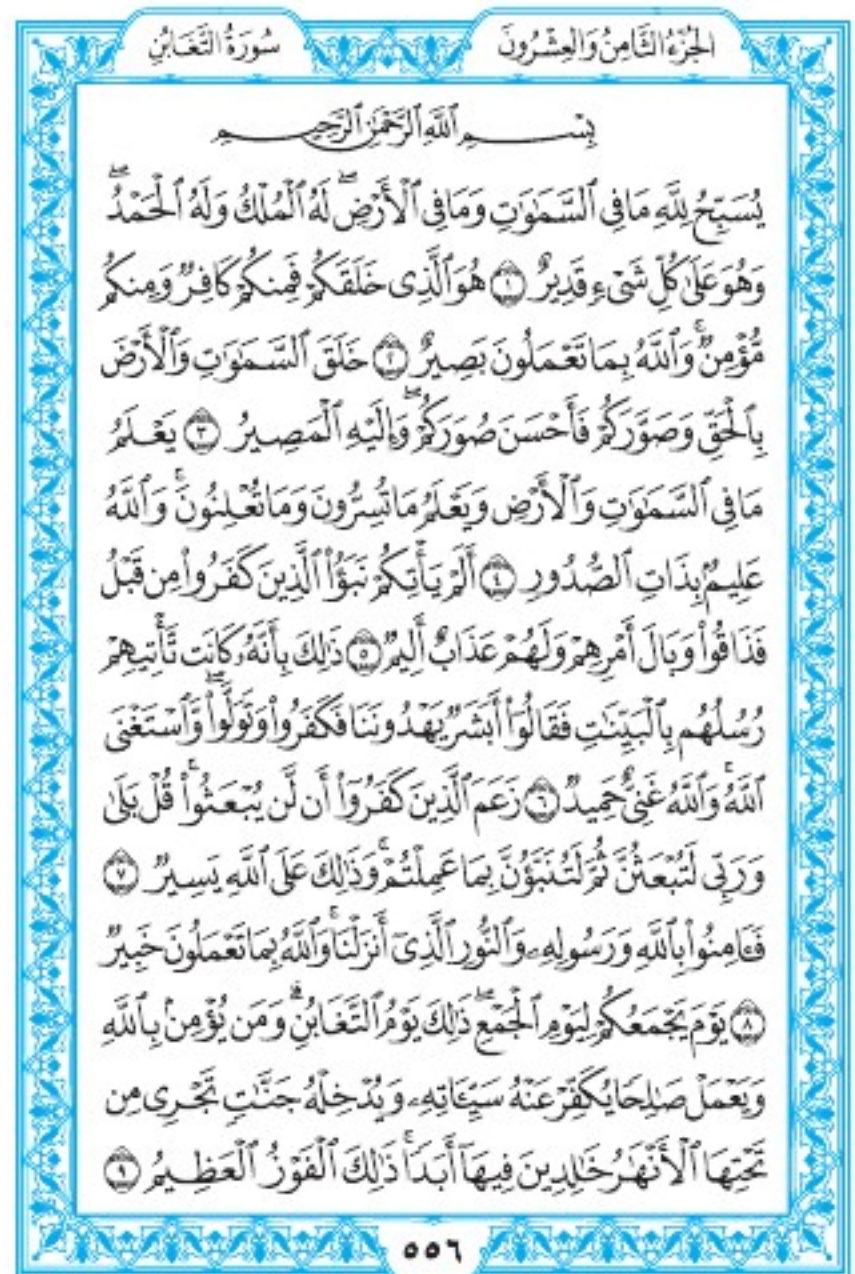 سُورَةُ التَّغَابُنِ
الجُزْءُ الثَّامِنُ وَالعِشْرُونَ
بِسْمِ ٱللَّهِ ٱلرَّحْمَٰنِ ٱلرَّحِيمِ
يُسَبِّحُ لِلَّهِ مَا فِي ٱلسَّمَٰوَٰتِ وَمَا فِي ٱلْأَرْضِۖ لَهُ ٱلْمُلْكُ وَلَهُ ٱلْحَمْدُۖ
وَهُوَ عَلَىٰ كُلِّ شَىْءٍ قَدِيرٌ ١ هُوَ ٱلَّذِى خَلَقَكُمْ فَمِنكُمْ كَافِرٌ وَمِنكُم
مُّؤْمِنٌۚ وَٱللَّهُ بِمَا تَعْمَلُونَ بَصِيرٌ ٢ خَلَقَ ٱلسَّمَٰوَٰتِ وَٱلْأَرْضَ
بِٱلْحَقِّ وَصَوَّرَكُمْ فَأَحْسَنَ صُوَرَكُمْۖ وَإِلَيْهِ ٱلْمَصِيرُ ٣ يَعْلَمُ
مَا فِي ٱلسَّمَٰوَٰتِ وَٱلْأَرْضِ وَيَعْلَمُ مَا تُسِرُّونَ وَمَا تُعْلِنُونَۚ وَٱللَّهُ
عَلِيمٌۢ بِذَاتِ ٱلصُّدُورِ ٤ أَلَمْ يَأْتِكُمْ نَبَؤُا۟ ٱلَّذِينَ كَفَرُوا۟ مِن قَبْلُ
فَذَاقُوا۟ وَبَالَ أَمْرِهِمْ وَلَهُمْ عَذَابٌ أَلِيمٌ ٥ ذَٰلِكَ بِأَنَّهُۥ كَانَت تَّأْتِيهِمْ
رُسُلُهُم بِٱلْبَيِّنَٰتِ فَقَالُوٓا۟ أَبَشَرٌ يَهْدُونَنَا فَكَفَرُوا۟ وَتَوَلَّوا۟ۖ وَّٱسْتَغْنَى
ٱللَّهُۚ وَٱللَّهُ غَنِىٌّ حَمِيدٌ ٦ زَعَمَ ٱلَّذِينَ كَفَرُوٓا۟ أَن لَّن يُبْعَثُوا۟ۚ قُلْ بَلَىٰ
وَرَبِّى لَتُبْعَثُنَّ ثُمَّ لَتُنَبَّؤُنَّ بِمَا عَمِلْتُمْۚ وَذَٰلِكَ عَلَى ٱللَّهِ يَسِيرٌ ٧
فَـَٔامِنُوا۟ بِٱللَّهِ وَرَسُولِهِۦ وَٱلنُّورِ ٱلَّذِىٓ أَنزَلْنَاۚ وَٱللَّهُ بِمَا تَعْمَلُونَ خَبِيرٌ
٨ يَوْمَ يَجْمَعُكُمْ لِيَوْمِ ٱلْجَمْعِۖ ذَٰلِكَ يَوْمُ ٱلتَّغَابُنِۗ وَمَن يُؤْمِنۢ بِٱللَّهِ
وَيَعْمَلْ صَٰلِحًا يُكَفِّرْ عَنْهُ سَيِّـَٔاتِهِۦ وَيُدْخِلْهُ جَنَّٰتٍ تَجْرِى مِن
تَحْتِهَا ٱلْأَنْهَٰرُ خَٰلِدِينَ فِيهَآ أَبَدًاۚ ذَٰلِكَ ٱلْفَوْزُ ٱلْعَظِيمُ ٩
٥٥٦